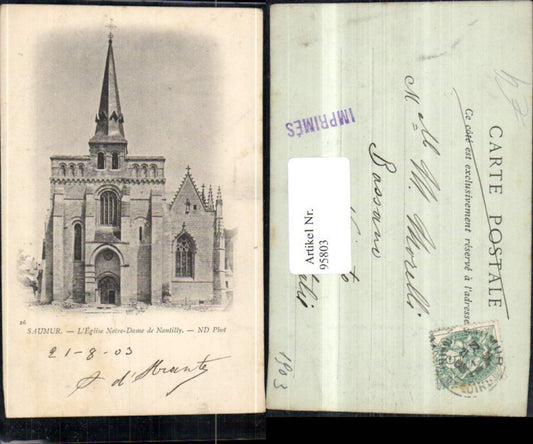 26
SAUMUR. — L'Église Notre-Dame de Nantilly. — ND Phot
21-8-03
CARTE POSTALE
Ce côté est exclusivement réservé à l'adresse
IMPRIMÉS
M. Morelli
Bassano
1903
Artikel Nr.
95803